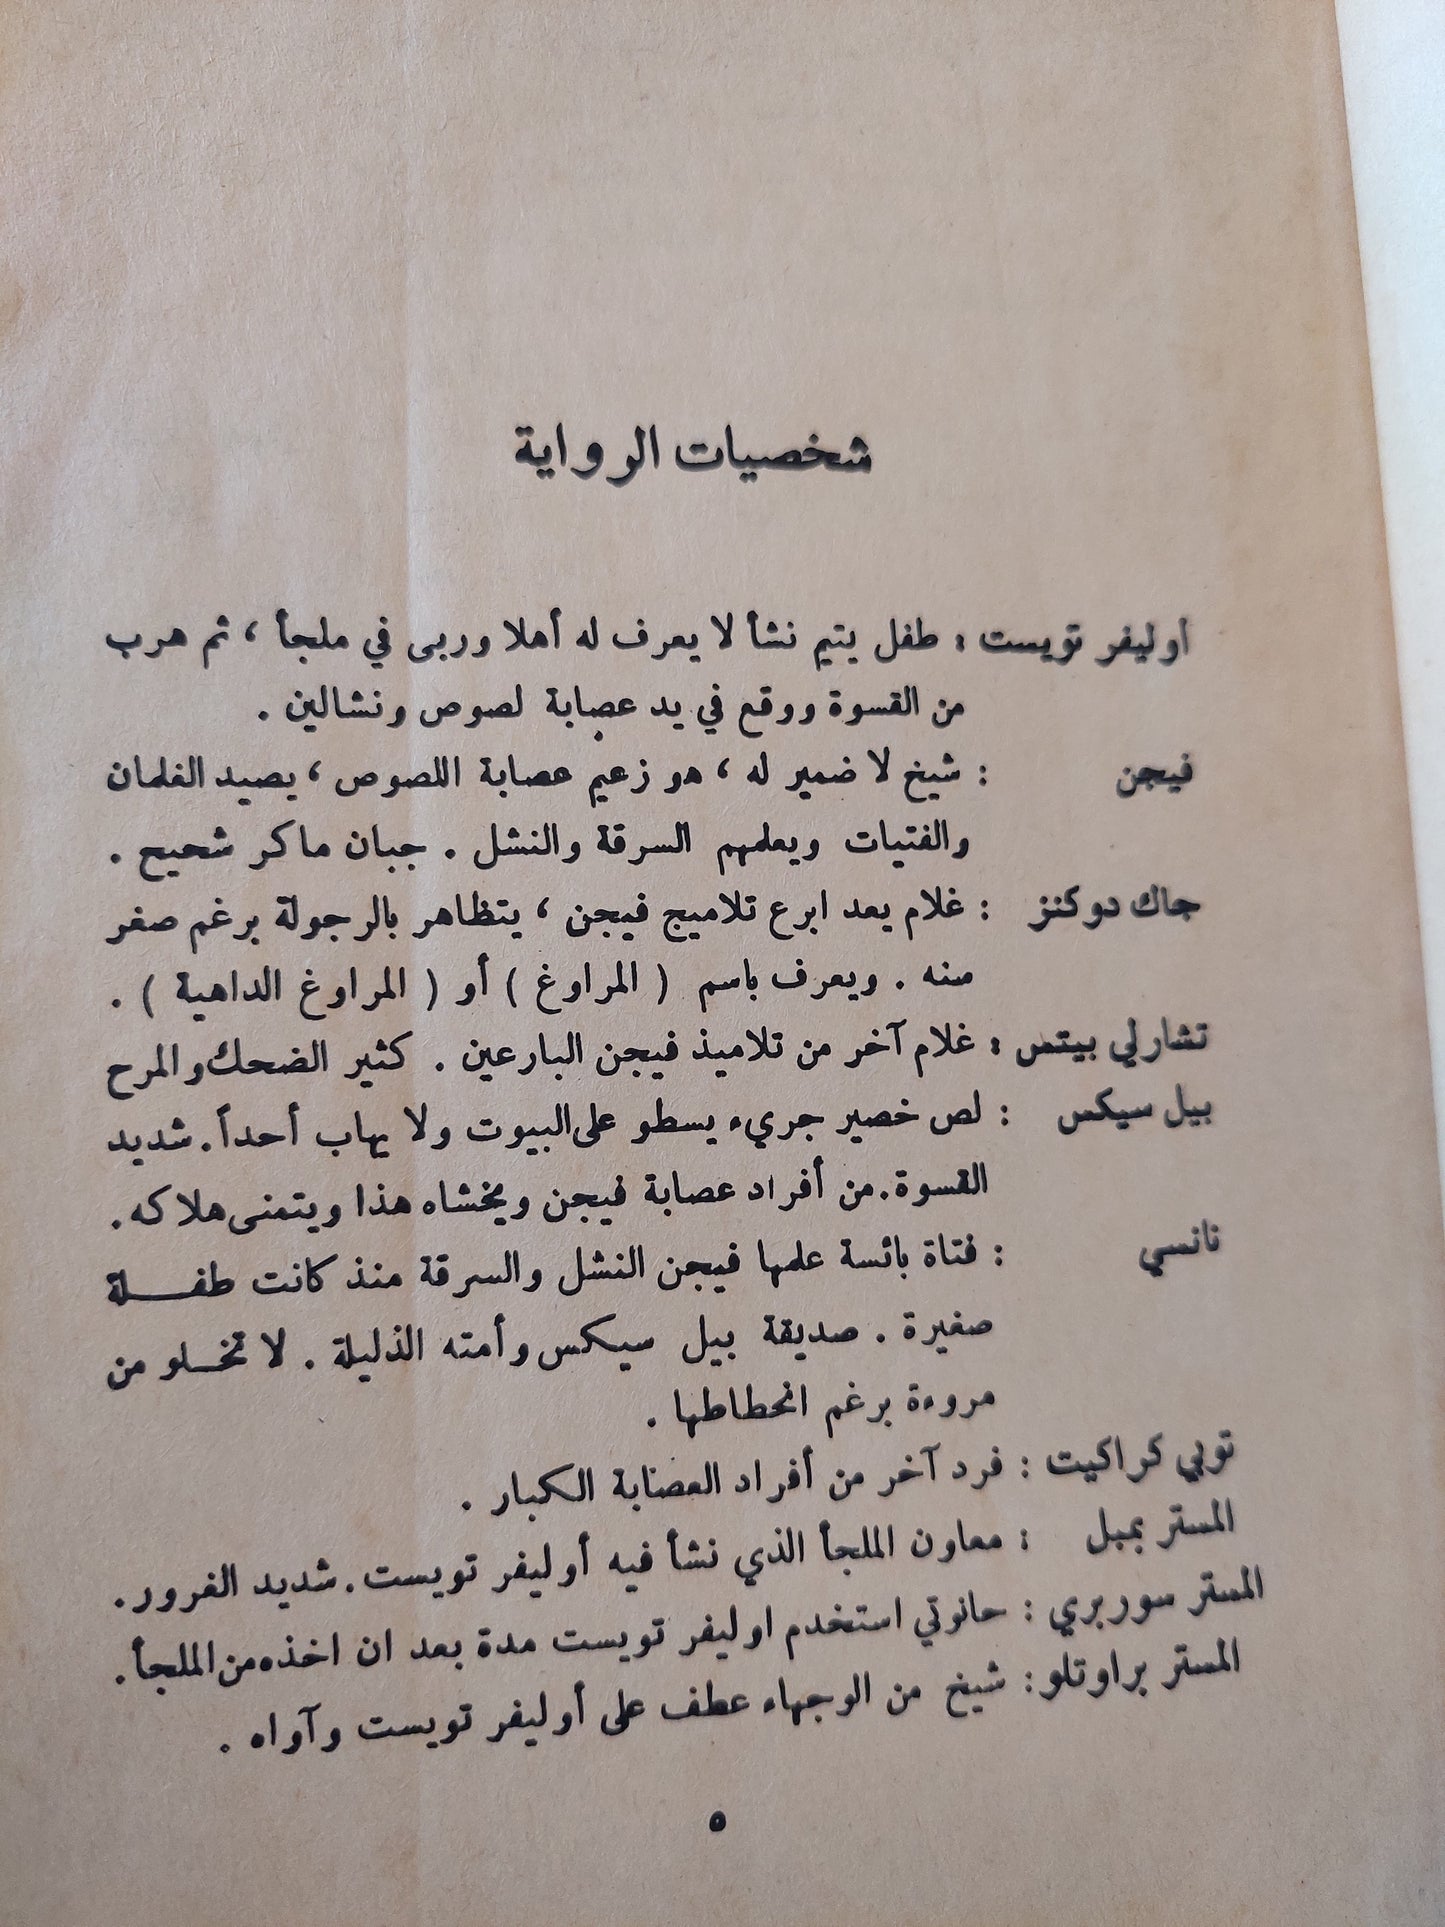 شخصيات الرواية
أوليفر تويست : طفل يتيم نشأ لا يعرف له أهلا وربى في ملجأ ، ثم هرب
من القسوة ووقع في يد عصابة لصوص ونشالين .
فيجن : شيخ لا ضمير له ، هو زعيم عصابة اللصوص ، يصيد الغلمان
والفتيات ويعلمهم السرقة والنشل . جبان ماكر شحيح .
جاك دوكنز : غلام يعد ابرع تلاميج فيجن ، يتظاهر بالرجولة برغم صغر
سنه . ويعرف باسم ( المراوغ ) أو ( المراوغ الداهية ) .
تشارلي بيتس : غلام آخر من تلاميذ فيجن البارعين . كثير الضحك والمرح
بيل سيكس : لص خصير جريء يسطو على البيوت ولا يهاب أحداً . شديد
القسوة . من أفراد عصابة فيجن ويخشاه هذا ويتمنى هلاكه .
نانسي : فتاة بائسة علمها فيجن النشل والسرقة منذ كانت طفلة
صغيرة . صديقة بيل سيكس وأمته الذليلة . لا تخلو من
مروءة برغم انحطاطها .
توبي كراكيت : فرد آخر من أفراد العصابة الكبار .
المستر بمبل : معاون الملجأ الذي نشأ فيه أوليفر تويست . شديد الغرور .
المستر سوربري : حانوتي استخدم اوليفر تويست مدة بعد ان اخذه من الملجأ .
المستر براونلو : شيخ من الوجهاء عطف على أوليفر تويست وآواه .
٥